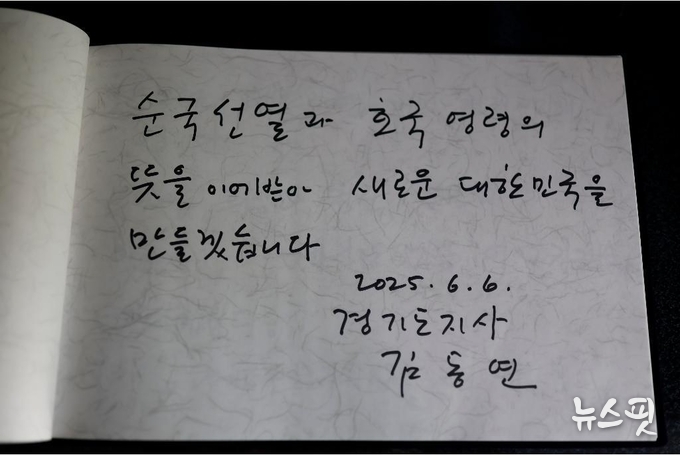 순국선열과 호국영령의
뜻을 이어받아 새로운 대한민국을
만들겠습니다
2025. 6. 6.
경기도지사
김동연
뉴스핏